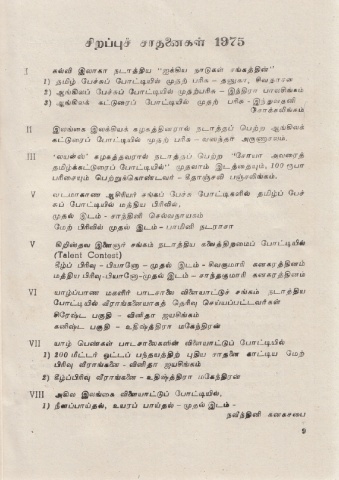 சிறப்புச் சாதனைகள் 1975
I கல்வி இலாகா நடாத்திய "ஐக்கிய நாடுகள் சங்கத்தின்"
1) தமிழ் பேச்சுப் போட்டியில் முதற் பரிசு - தனுகா, சிவதாசன
2) ஆங்கிலப் பேச்சுப் போட்டியில் முதற்பரிசு - இந்திரா பாலசிங்கம்
3) ஆங்கிலக் கட்டுரைப் போட்டியில் முதற் பரிசு - இந்துமதனி
சோக்கலிங்கம்
II இலங்கை இலக்கியக் கழகத்தினரால் நடாத்தப் பெற்ற ஆங்கிலக்
கட்டுரைப் போட்டியில் முதற் பரிசு - வலந்தர் அருணாசலம்.
III 'லயன்ஸ்' கழகத்தவரால் நடாத்தப் பெற்ற "சோயா அவரைத்
தமிழ்க்கட்டுரைப் போட்டியில்" முதலாம் இடத்தையும், 100 ரூபா
பரிசையும் பெற்றுக்கொண்டவர் - கீதாஞ்சலி பஞ்சலிங்கம்.
V வடமாகாண ஆசிரியர் சங்கப் பேச்சு போட்டிகளில் தமிழ்ப் பேச்
சுப் போட்டியில் மத்திய பிரிவில்,
முதல் இடம் - சாந்தினி செல்வநாயகம்
மேற் பிரிவில் முதல் இடம் - பாமினி நடராசா
V கிறிஸ்தவ இளைஞர் சங்கம் நடாத்திய கலைத்திறமைப் போட்டியில்
(Talent Contest)
கீழ்ப் பிரிவு - பியானோ - முதல் இடம் - சிவகுமாரி கனகரத்தினம்
மத்திய பிரிவு-பியானோ-முதல் இடம் - சாந்தகுமாரி கனகரத்தினம்
VI யாழ்ப்பாண மகளிர் பாடசாலை விளையாட்டுச் சங்கம் நடாத்திய
போட்டியில் வீராங்கனையாகத் தெரிவு செய்யப்பட்டவர்கள்
சிரேஷ்ட பகுதி - வினிதா ஜயசிங்கம்
கனிஷ்ட பகுதி - உதிஷ்த்திரா மகேந்திரன்
VII யாழ் பெண்கள் பாடசாலைகளின் விளையாட்டுப் போட்டியில்
1) 200 மீட்டர் ஓட்டப் பந்தயத்திற் புதிய சாதனை காட்டிய மேற்
பிரிவு வீராங்கனை - வினிதா ஜயசிங்கம்
2) கீழ்ப்பிரிவு வீராங்கனை - உதிஷ்த்திரா மகேந்திரன்
VIII அகில இலங்கை விளையாட்டுப் போட்டியில்,
1) நீளப்பாய்தல், உயரப் பாய்தல் - முதல் இடம் -
நவீந்தினி கனகசபை
9